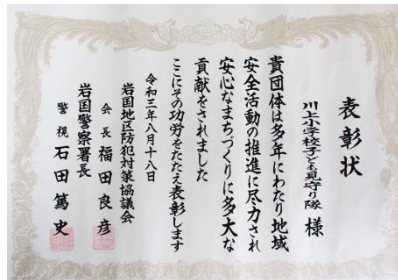 表彰状
川上小学校子ども見守り隊 様
貴団体は多年にわたり地域
安全活動の推進に尽力され
安心なまちづくりに多大な
貢献をされました
ここにその功労をたたえ表彰します
令和三年八月十八日
岩国地区防犯対策協議会
会長 福田良彦
岩国警察署長
警視 石田篤史